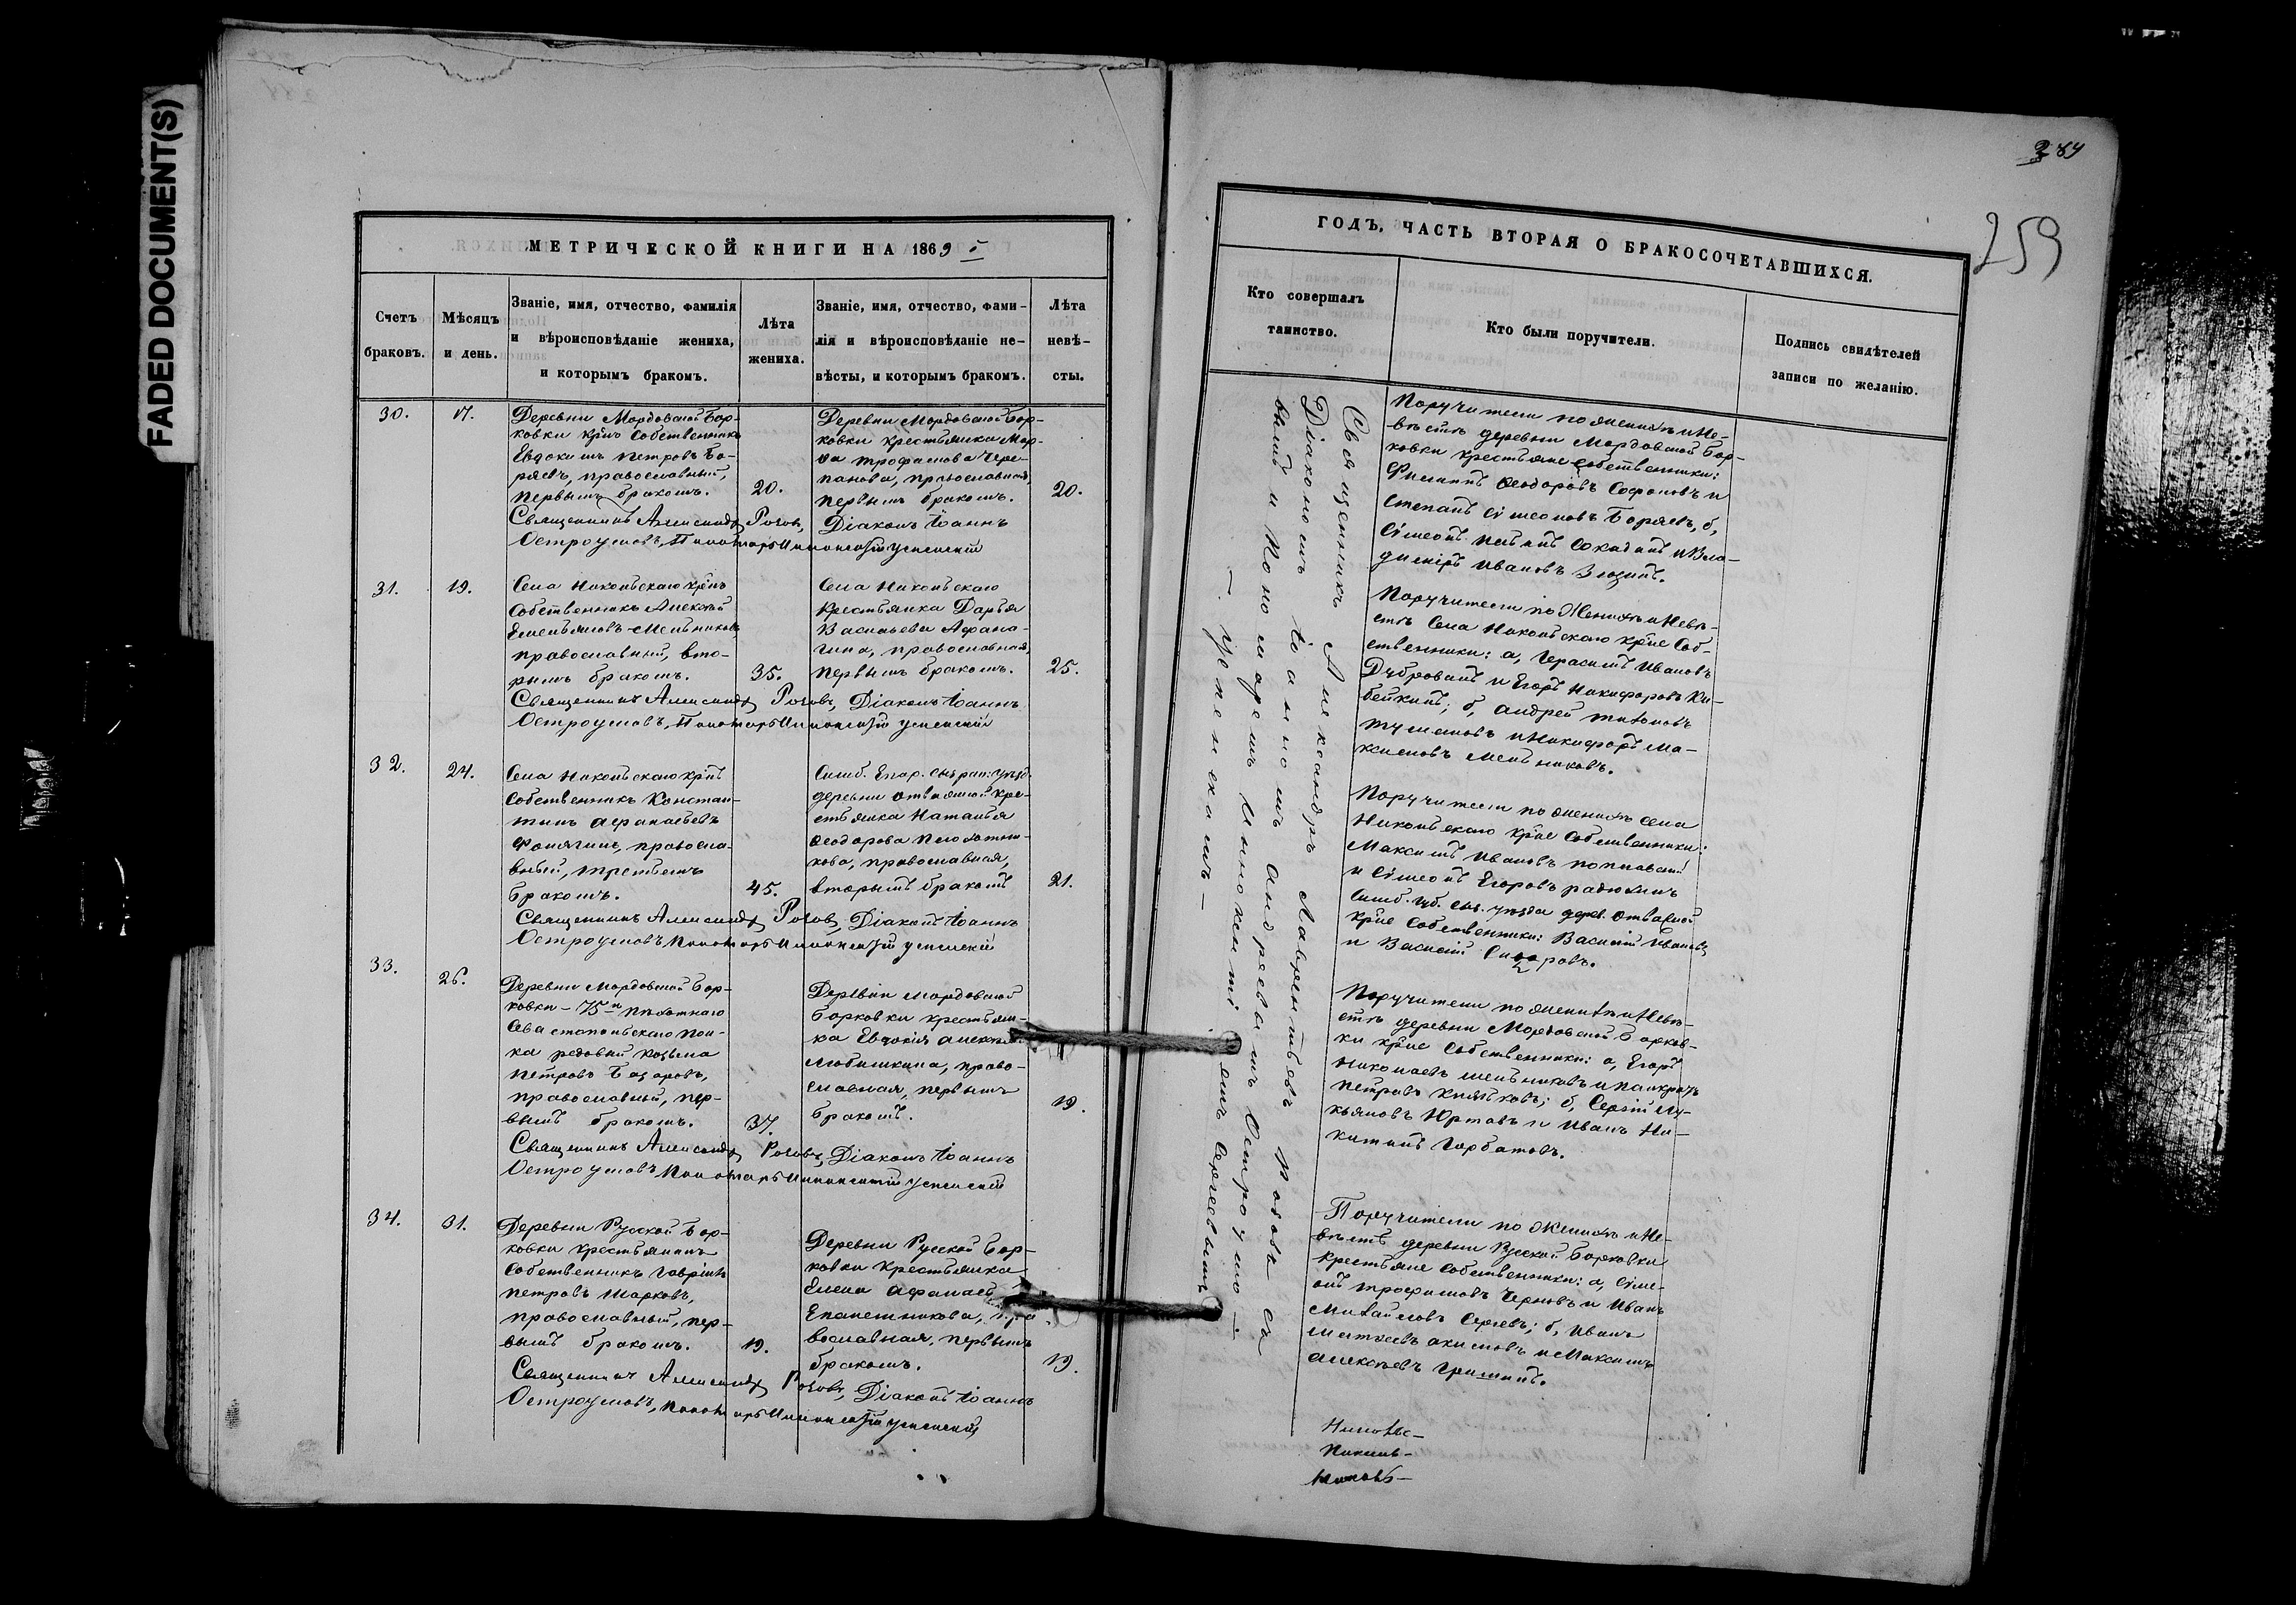 FADED DOCUMENT(S)
МЕТРИЧЕСКОЙ КНИГИ НА 1869 й
Счетъ браковъ.
Мѣсяцъ и день.
Званіе, имя, отчество, фамилія
и вѣроисповѣданіе жениха,
и которымъ бракомъ.
Лѣта
жениха.
Званіе, имя, отчество, фами-
лія и вѣроисповѣданіе не-
вѣсты, и которымъ бракомъ.
Лѣта
невѣ-
сты.
30.
17.
Деревни Мордовской Бор-
ковки кр̃нъ Собственникъ
Евдокимъ Петровъ Бо-
ряевъ, православный,
первымъ бракомъ.
20.
Деревни Мордовской Бор-
ковки крестьянка Мар-
ѳа Трофимова Чере-
панова, православная,
первымъ бракомъ.
20.
Священникъ Александръ Роговъ, Діаконъ Іоаннъ
Остроумовъ, Пономарь Иннокентій Успенскій
31.
19.
Села Никольскаго кр̃нъ
Собственникъ Алексѣй
Емельяновъ Мельниковъ
православный, вто-
рымъ бракомъ.
35.
Села Никольскаго
Крестьянка Дарья
Васильева Афана-
сина, православная,
первымъ бракомъ.
25.
Священникъ Александръ Роговъ, Діаконъ Іоаннъ
Остроумовъ, Пономарь Иннокентій Успенскій
32.
24.
Села Никольскаго кр̃нъ
Собственникъ Констан-
тинъ Афанасьевъ
православ-
ный, третьимъ
бракомъ.
45.
Симб. Губер. Сызран: уѣзд.
деревни Отважной Кре-
стьянка Наталья
Ѳеодорова Плотни-
кова, православная,
вторымъ бракомъ
21.
Священникъ Александръ Роговъ, Діаконъ Іоаннъ
Остроумовъ Пономарь Иннокентій Успенскій
33.
26.
Деревни Мордовской Бор-
ковки – 75 го пѣхотнаго
Севастопольскаго пол-
ка рядовый Козьма
Петровъ Базаровъ,
православный, пер-
вымъ бракомъ.
37.
Деревни Мордовской
Борковки крестьян-
ка Евдокія Алексѣева
Любишкина, право-
славная, первымъ
бракомъ.
19.
Священникъ Александръ Роговъ, Діаконъ Іоаннъ
Остроумовъ Пономарь Иннокентій Успенскій
34.
31.
Деревни Русской Бор-
ковки Крестьянинъ
Собственникъ Гавріилъ
Петровъ Шарковъ,
православный, пер-
вымъ бракомъ.
19.
Деревни Русской Бор-
ковки Крестьянка
Елена Афанасьева
Епанешникова, пра-
вославная, первымъ
бракомъ.
19.
Священникъ Александръ Роговъ, Діаконъ Іоаннъ
Остроумовъ, Пономарь Иннокентій Успенскій
289
259
ГОДЪ, ЧАСТЬ ВТОРАЯ О БРАКОСОЧЕТАВШИХСЯ.
Кто совершалъ
таинство.
Кто были поручители.
Подпись свидѣтелей
записи по желанію.
Священникъ Александръ Лаврентьевъ Роговъ съ
Діакономъ Іоанномъ Андреевымъ Остроумо-
вымъ и Пономаремъ Иннокентіемъ Сергѣевымъ
– Успенскимъ –
Поручители по женихѣ и Не-
вѣстѣ деревни Мордовской Бор-
ковки крестьяне собственники:
Филипъ Ѳеодоровъ Софоновъ и
Степанъ Сѵмеоновъ Боряевъ, б,
Сѵмеонъ и Вла-
димиръ Ивановъ Зюзинъ.
Поручители по Женихѣ и Невѣ-
стѣ Села Никольскаго кр̃не Соб-
ственники: а, Герасимъ Ивановъ
Дубровинъ и Егоръ Никифоровъ Ки-
бейкинъ; б, Андрей Тихоновъ
и Никифоръ Ма-
ксимовъ Мельниковъ.
Поручители по женихѣ Села
Никольскаго кр̃не Собственники:
Максимъ Ивановъ Поплавскій
и Сѵмеонъ Егоровъ Радюхинъ
Симб. губ. Сыз. уѣзда дерев. Отважной
кр̃не Собственники: Василій Ивановъ
и Василій Сидоровъ.
Поручители по женихѣ и Невѣ-
стѣ деревни Мордовской Борков-
ки кр̃не Собственники: а, Егоръ
Николаевъ Мельниковъ и Панкратъ
Петровъ Князьковъ; б, Сергій Лу-
кьяновъ Юртовъ и Иванъ Ни-
китинъ Горбатовъ.
Поручители по Женихѣ и Не-
вѣстѣ деревни Русской Борковки
Крестьяне Собственники: а, Сѵме-
онъ Трофимовъ Черновъ и Иванъ
Михайловъ Сергѣевъ; б, Иванъ
Матвѣевъ Акимовъ и Максимъ
Алексѣевъ Гришинъ.